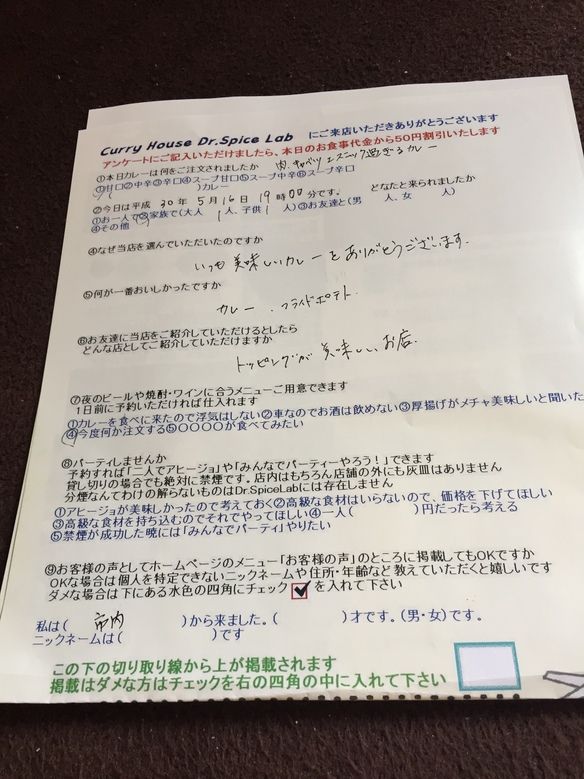 Curry House Dr.Spice Lab にご来店いただきありがとうございます
アンケートにご記入いただけましたら、本日のお食事代金から50円割引いたします
①本日カレーは何をご注文されましたか 肉、キャベツ エスニック過ぎるカレー
①甘口②中辛③辛口④スープ甘口⑤スープ中辛⑥スープ辛口
( )カレー
②今日は平成 30年 5月16日 19時00分です。 どなたと来られましたか
①お一人で②家族で(大人 1人、子供 1人)③お友達と(男 人、女 人)
④その他
④なぜ当店を選んでいただいたのですか
いつも美味しいカレーをありがとうございます.
⑤何が一番おいしかったですか
カレー、フライドポテト.
⑥お友達に当店をご紹介していただけるとしたら
どんな店としてご紹介していただけますか
トッピングが美味しい、お店.
⑦夜のビールや焼酎・ワインに合うメニューご用意できます
1日前に予約いただければ仕入れます
①カレーを食べに来たので浮気はしない②車なのでお酒は飲めない③厚揚げがメチャ美味しいと聞いた
④今度何か注文する⑤〇〇〇〇が食べてみたい
⑧パーティしませんか
予約すれば「二人でアヒージョ」や「みんなでパーティーやろう!」できます
貸し切りの場合でも絶対に禁煙です。店内はもちろん店舗の外にも灰皿はありません
分煙なんてわけの解らないものはDr.SpiceLabには存在しません
①アヒージョが美味しかったので考えておく②高級な食材はいらないので、価格を下げてほしい
③高級な食材を持ち込むのでそれでやってほしい④一人( )円だったら考える
⑤禁煙が成功した暁には「みんなでパーティ」やりたい
⑨お客様の声としてホームページのメニュー「お客様の声」のところに掲載してもOKですか
OKな場合は個人を特定できないニックネームや住所・年齢など教えていただくと嬉しいです
ダメな場合は下にある水色の四角にチェック を入れて下さい
私は( 市内 )から来ました。( )才です。(男・女)です。
ニックネームは( )です
この下の切り取り線から上が掲載されます
掲載はダメな方はチェックを右の四角の中に入れて下さい